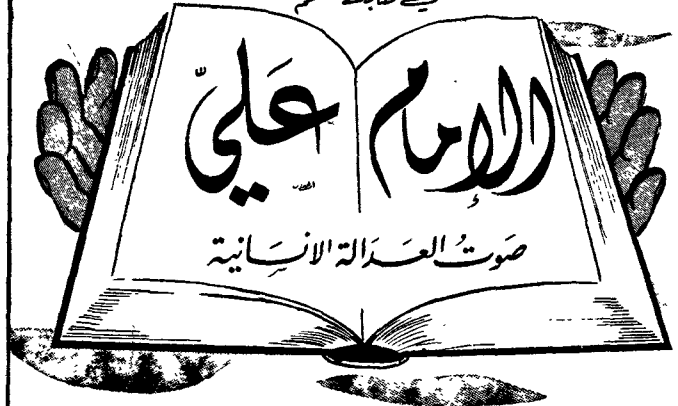 الإمام عليّ
صَوتُ العَدَالة الانسَانية